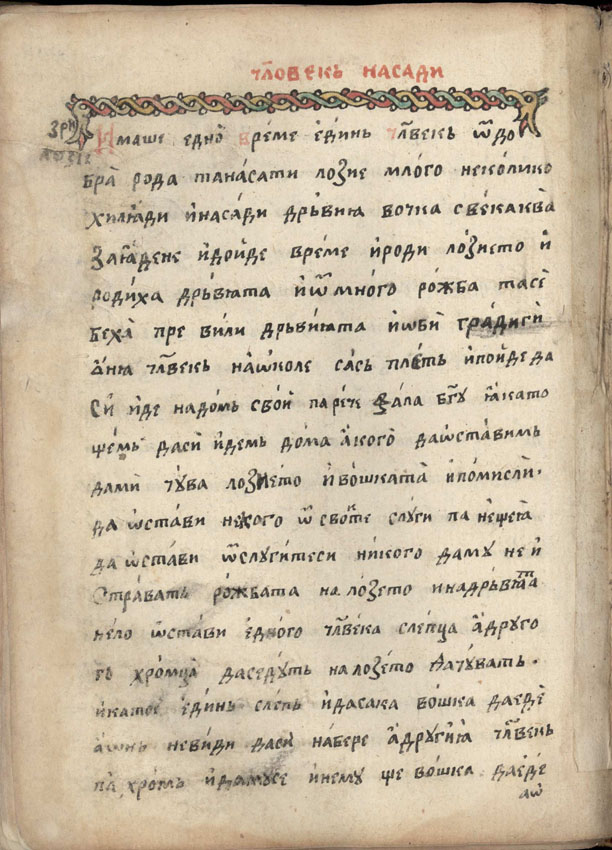 чл҃овекь насади
зри
лозїе
Имаше едно̀ време еди́нь чл҃векь ѿ до
бра̀ рода та насати лозие мло́го неколико
хилꙗ́ди и҆ наса́ди дрьвиꙗ вочка свекаква̀
за ꙗ҆дене и҆ до́йде време и҆ роди ло́зието и҆
роди́ха дрьвꙗта и҆ ѿ мно́го ро́жба та сѐ
беха̀ пре вили дрьви́ꙗта и҆ ѡ҆би́ гра́диги
ѡ҆нꙗ чл҃векь на ѡ҆коле сась пле́ть и҆ по́йде да
си́ и҆де на домь сво́й па рече фала бг҃у ꙗ҆като
щемь да си́ и҆демь до́ма а҆ кого̀ да ѡ҆ставимь
да ми́ ту́ва лози́ето и҆ во́шката и҆ помисли.
да ѡ҆стави некого ѿ свои́те слуги па не щеꙗ̀
да ѡ҆стави ѿ слуги́те си ни́кого да му не и҆
стра́вать ро́жбата на ло́зето и на дрьвꙗ̀та
нело ѡ҆ста́ви е҆дно́го чл҃ве́ка слепца а҆ друго
го хро́мца̀ да седу́ть на лозе́то да чу́вать.
и҆ като е҆ еди́нь сле́пь и҆ да сака во́шка да е҆дѐ
а҆ ѡ҆нь не ви́ди да сѝ на́бере а҆ други́ꙗ чл҃векь
па̀ хро́мь и҆ да му се и҆ не́му ще во́шка да е҆де
а ѡ҆